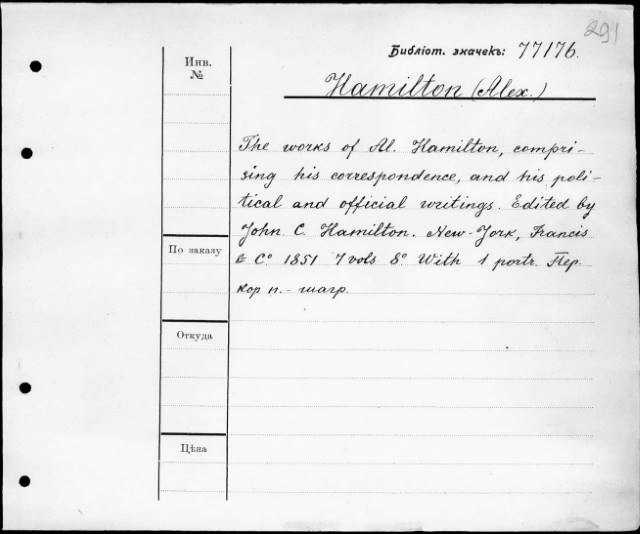 291
Библіот. значекъ: 77176.
Инв.
№
Hamilton (Alex.)
The works of Al. Hamilton, compri-
sing his correspondence, and his poli-
tical and official writings. Edited by
John C. Hamilton. New-York, Francis
& Cº 1851 7 vols 8º With 1 portr. Пер.
кор п.- шагр.
По заказу
Откуда
Цѣна